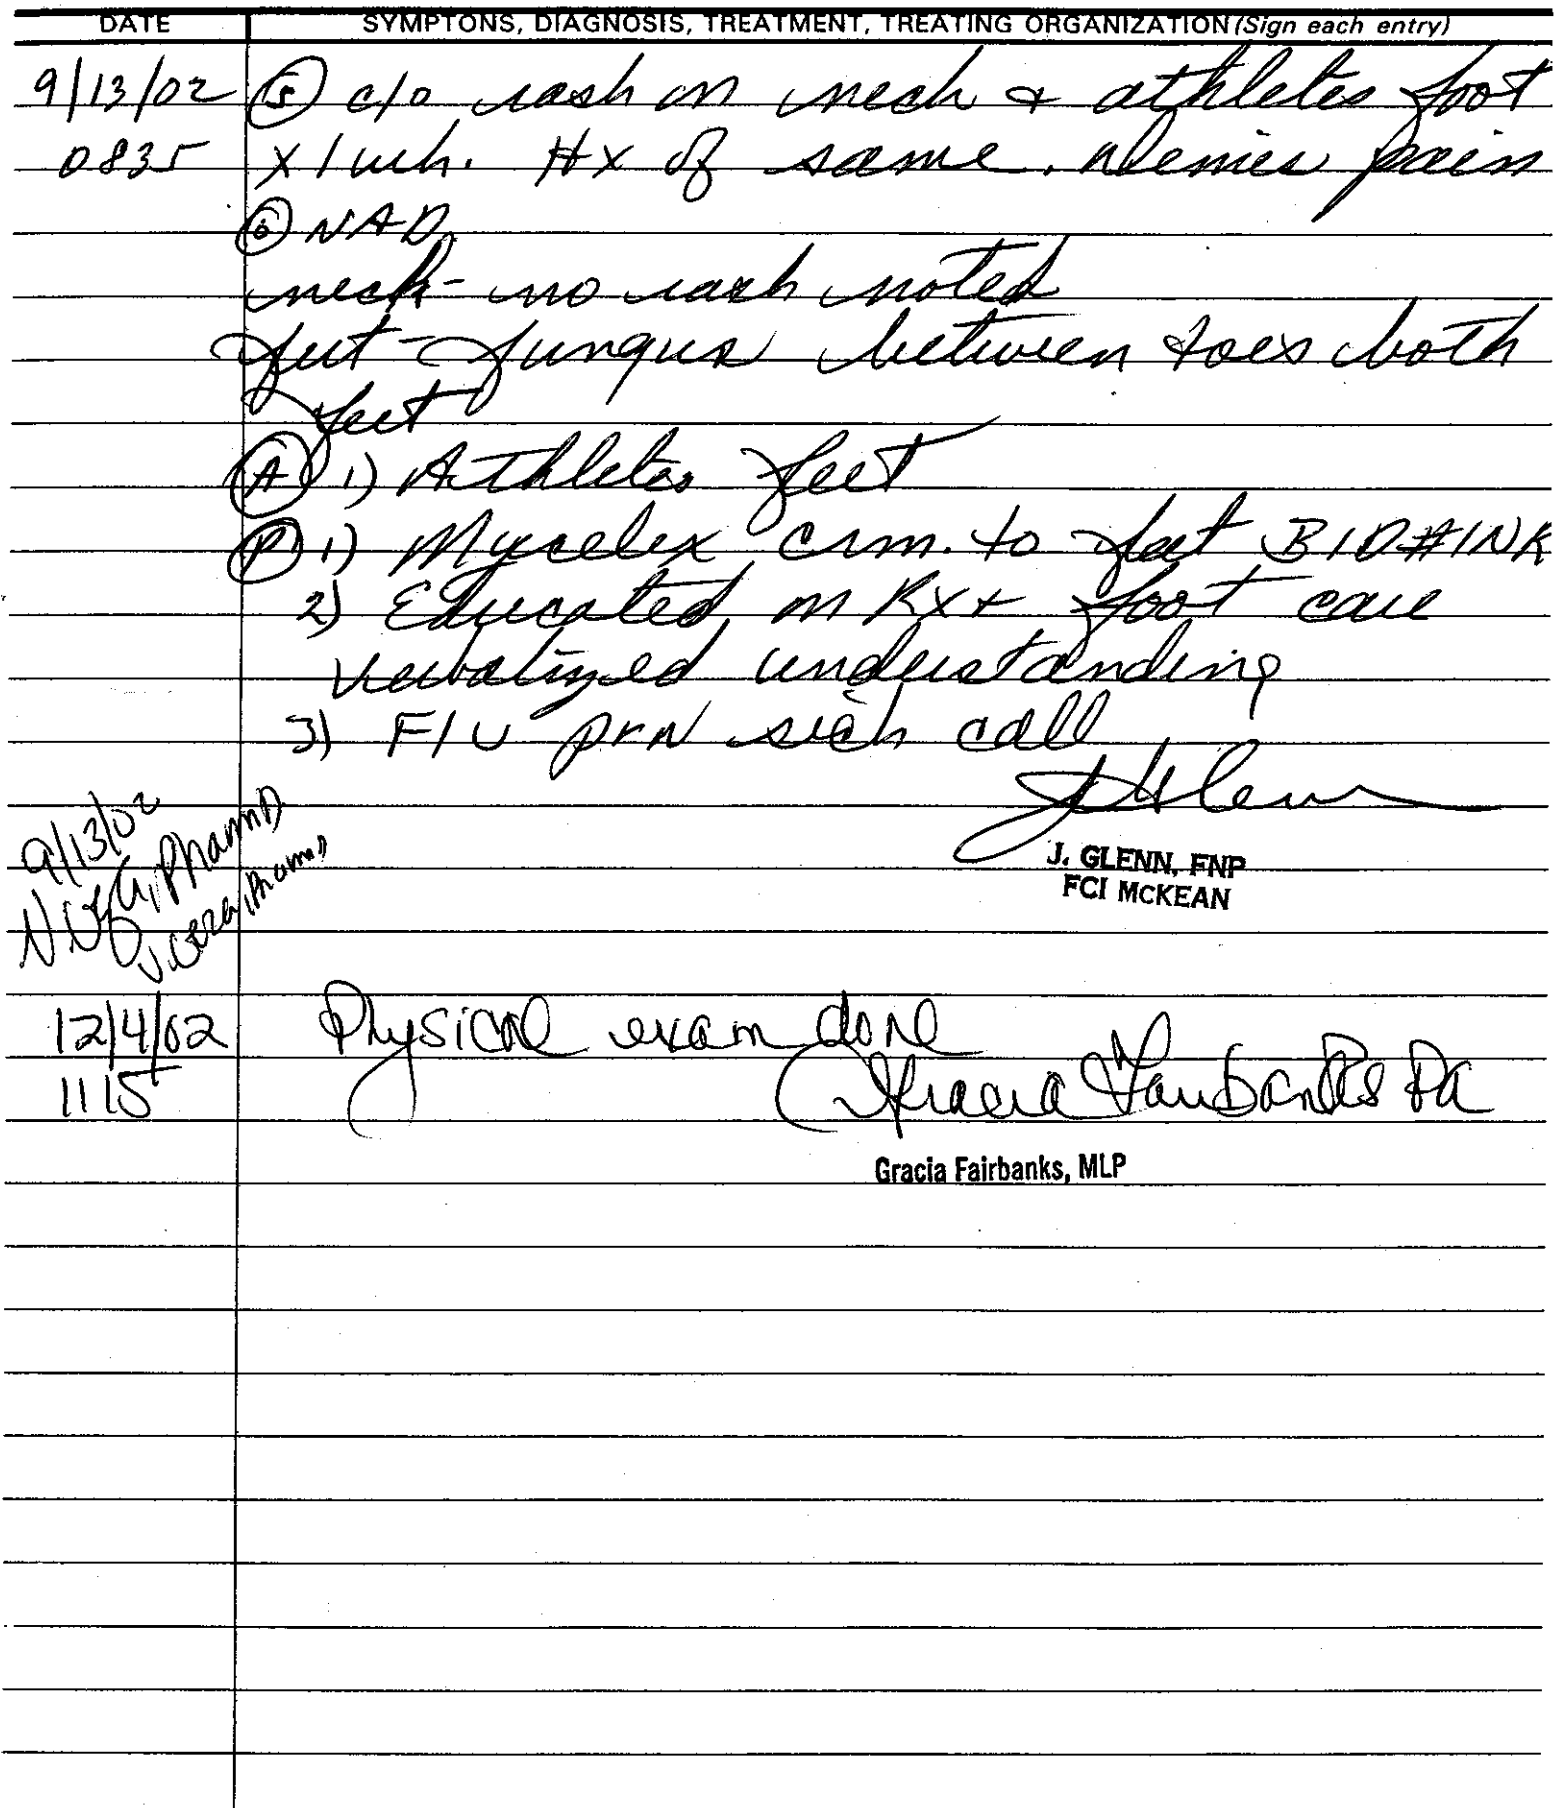 DATE SYMPTONS, DIAGNOSIS, TREATMENT, TREATING ORGANIZATION (Sign each entry)
9/13/02 Ⓢ c/o rash on neck & athletes foot
0835 x 1 wk. Hx of same. Denies pain
Ⓞ NAD
neck - no rash noted
feet - fungus between toes both
feet
Ⓐ 1) Athletes feet
Ⓟ 1) Mycelex crm. to feet BID #1NR
2) Educated on Rx + foot care
verbalized understanding
3) F/U prn sick call
J Glenn
J. GLENN, FNP
FCI MCKEAN
9/13/02
PharmD
PharmD
12/4/02 Physical exam done
1115 Gracia Fairbanks PA
Gracia Fairbanks, MLP